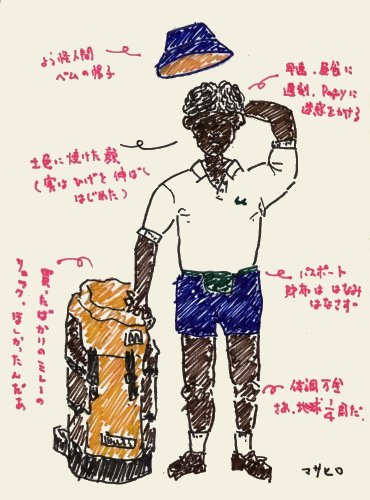 よう怪人間
ベムの帽子
早速、昼食に
遅刻、Partyに
迷惑をかける
土色に焼けた顔
(実はひげを伸ばし
はじめた)
買ったばかりのミレーの
リュック。ほしかったんだぁ
パスポート
財布は はなみ
はなさず。
体調万全
さあ、地球1/4周だ。
マサヒロ